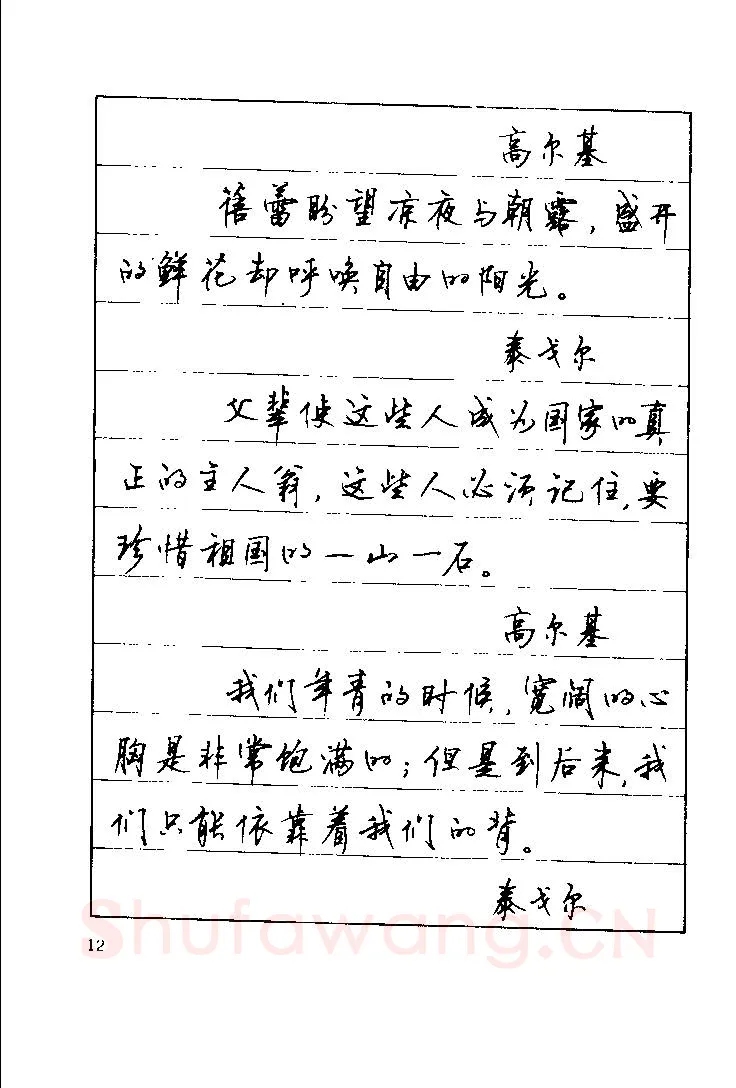 高尔基
蓓蕾盼望凉夜与朝露，盛开
的鲜花却呼唤自由的阳光。
泰戈尔
父辈使这些人成为国家的真
正的主人翁，这些人必须记住，要
珍惜祖国的一山一石。
高尔基
我们年青的时候，宽阔的心
胸是非常饱满的；但是到后来，我
们只能依靠着我们的背。
泰戈尔
12
Shufawang.CN